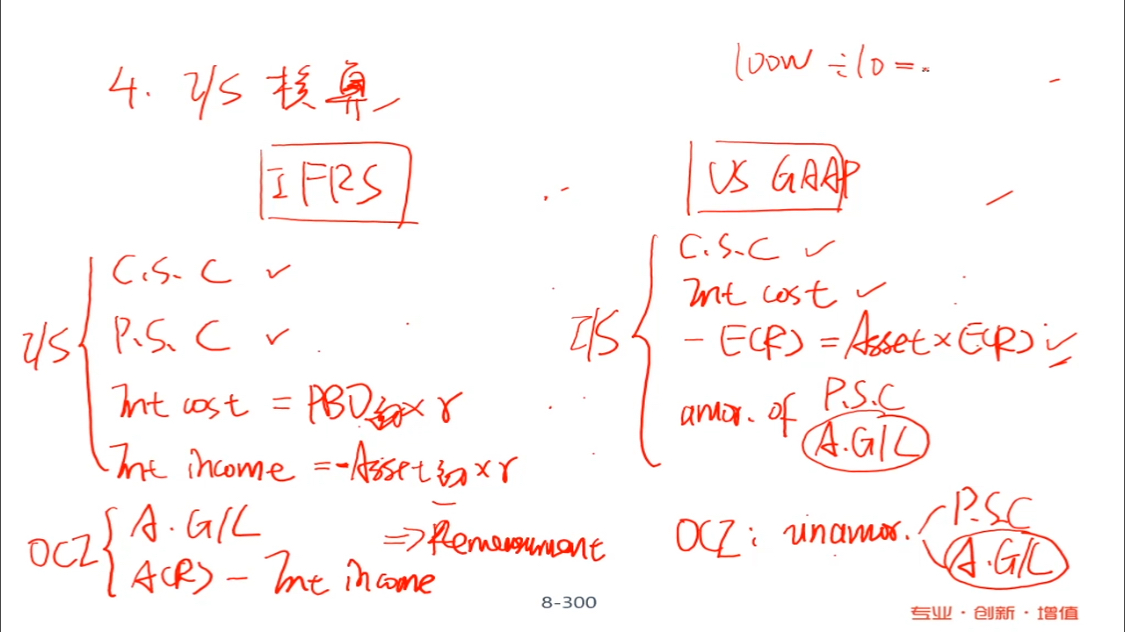 4. I/S 核算
100W ÷10 =
IFRS
US GAAP
I/S
C.S.C ✓
P.S.C ✓
Int cost = PBO初 × r
Int income = -Asset初 × r
OCI
A.G/L
A(R) - Int income
=> Remeasurement
I/S
C.S.C ✓
Int cost ✓
- E(R) = Asset × E(R) ✓
amor. of
P.S.C
A.G/L
OCI: unamor.
P.S.C
A.G/L
8-300
专业·创新·增值